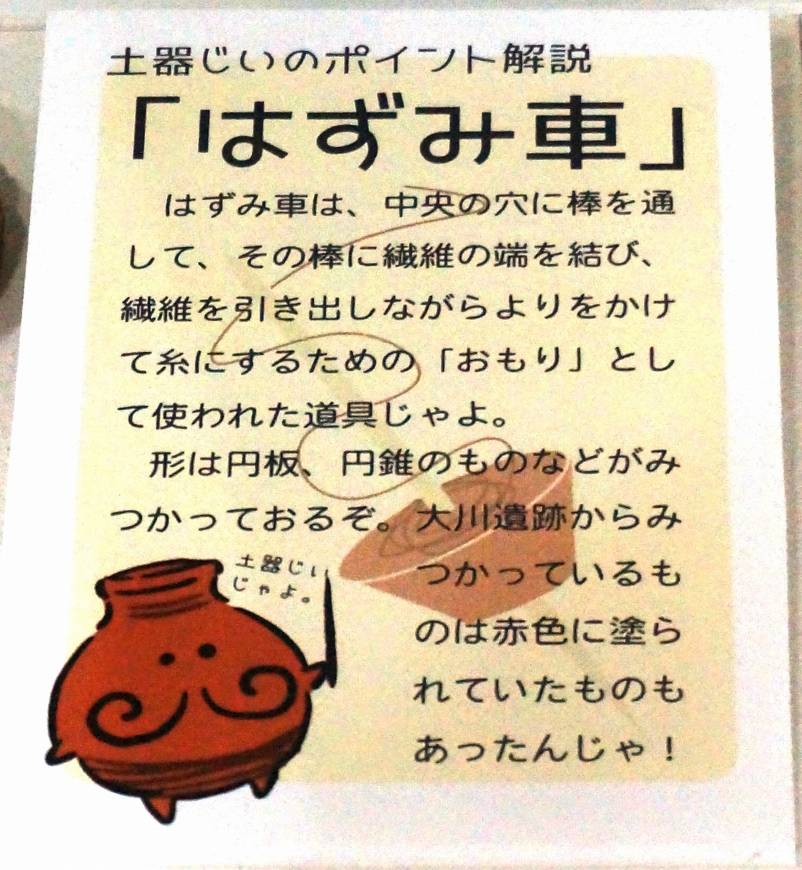 土器じいのポイント解説
「はずみ車」
はずみ車は、中央の穴に棒を通
して、その棒に繊維の端を結び、
繊維を引き出しながらよりをかけ
て糸にするための「おもり」とし
て使われた道具じゃよ。
形は円板、円錐のものなどがみ
つかっておるぞ。大川遺跡からみ
つかっているも
のは赤色に塗ら
れていたものも
あったんじゃ！
土器じい
じゃよ。